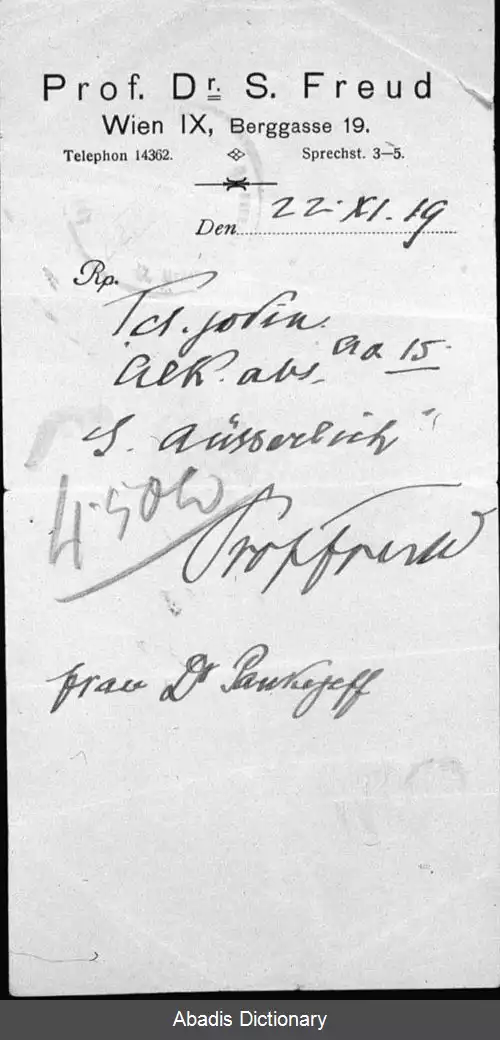 Prof. Dr. S. Freud
Wien IX, Berggasse 19.
Telephon 14362. Sprechst. 3–5.
Den 22. XI. 19
Rp.
Tct. jodin.
Alk. abs. aa 15
S. äusserlich
Prof Freud
Frau Dr Pankejeff
Abadis Dictionary